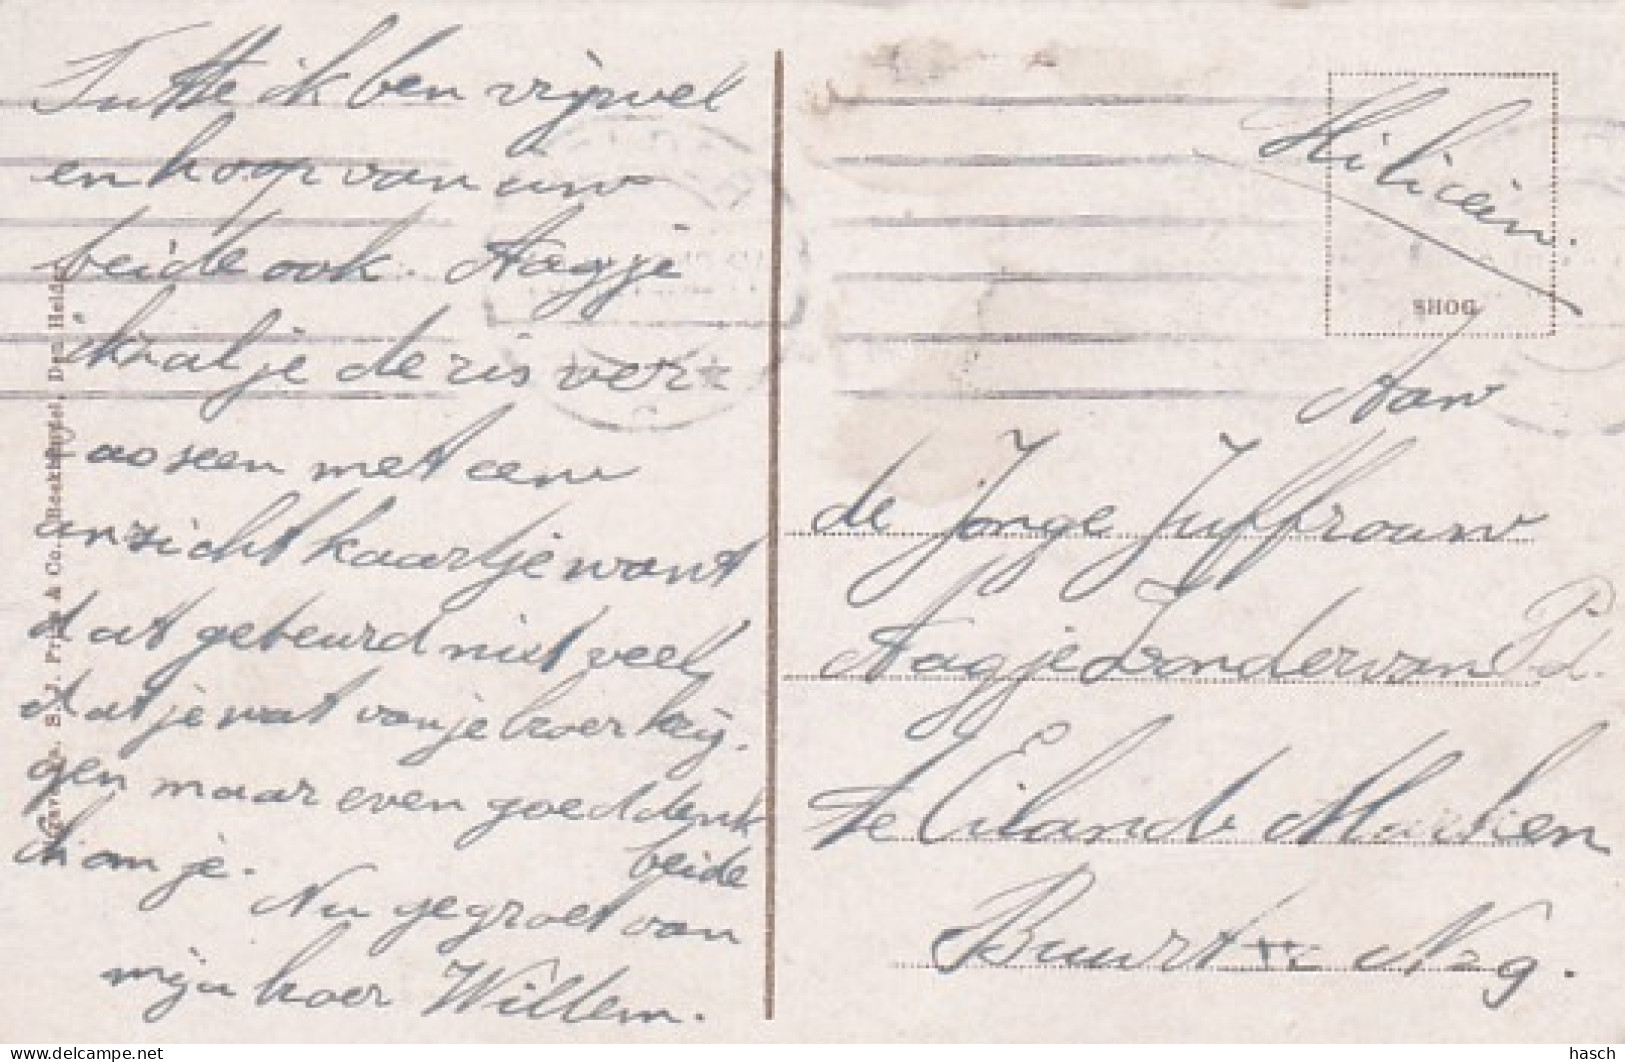 Tutte ik ben vrijwel
en hoop van uw
beide ook. Aagje
ik zal je de ris ver
raoseen met een
anzicht kaartje want
dat gebeurd niet veel
dat je wat van je broer krij.
gen maar even goed denk
ik an je. beide
Nu gegroet van
mijn broer Willem.
S. J. Prins & Co. Boekhandel, Den Helder
Milicien.
SHOG
Aan
de Jonge Juffrouw
Aagje Zondervan Pd.
te Eiland Marken
Buurt IV No 9.
hasch